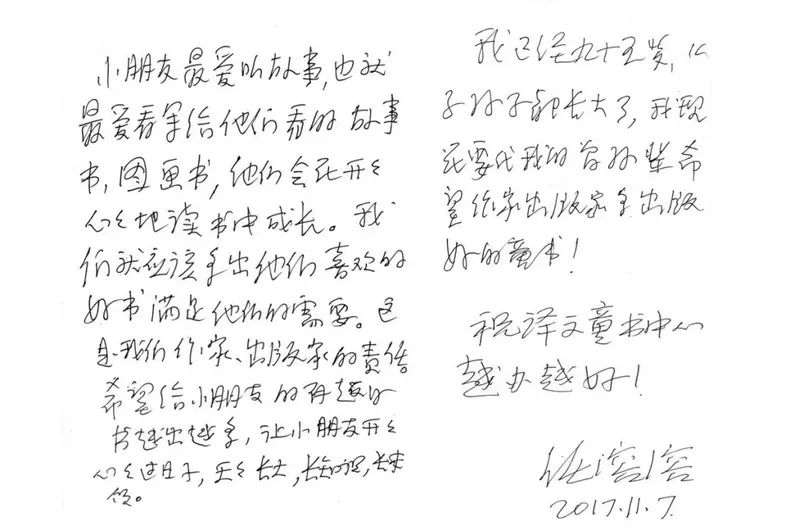 小朋友最爱听故事,也就
最爱看写给他们看的故事
书,图画书,他们会在开开
心心地读书中成长。我
们就应该多出他们喜欢的
好书满足他们的需要。这
是我们作家、出版家的责任
希望给小朋友的有趣的
书越出越多,让小朋友开开
心心过日子,天天长大,长知识,长本
领。
我已经九十五岁,儿
子孙子都长大了,我现
在要代我的曾孙辈希
望作家出版家多出版
好的童书!
祝译文童书中心
越办越好!
任溶溶
2017.11.7